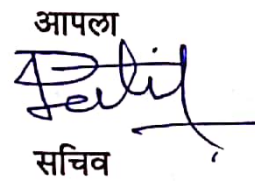 आपला
Patil
सचिव